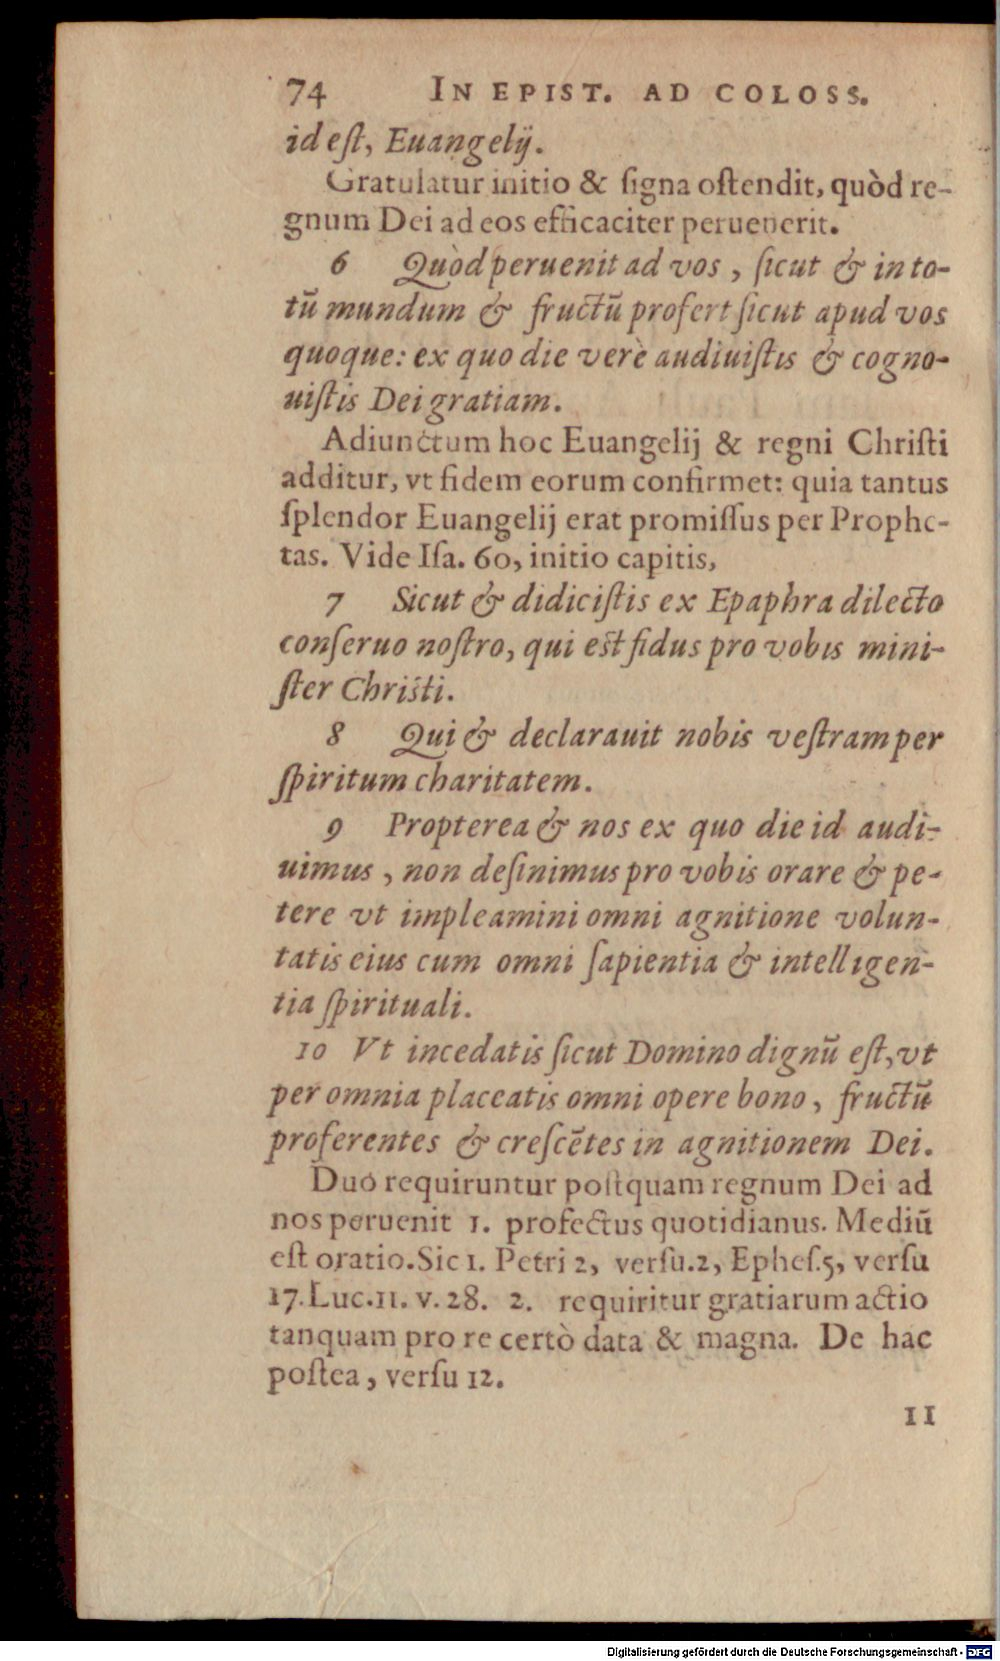 74 IN EPIST. AD COLOSS.
id eſt, Euangelij.
Gratulatur initio & ſigna oſtendit, quòd re-
gnum Dei ad eos efficaciter peruenerit.
6 Quòd peruenit ad vos, ſicut & in to-
tū mundum & fructū profert ſicut apud vos
quoque: ex quo die verè audiuiſtis & cogno-
uiſtis Dei gratiam.
Adiunctum hoc Euangelij & regni Chriſti
additur, vt fidem eorum confirmet: quia tantus
ſplendor Euangelij erat promiſſus per Prophe-
tas. Vide Iſa. 60, initio capitis,
7 Sicut & didiciſtis ex Epaphra dilecto
conſeruo noſtro, qui eſt fidus pro vobis mini-
ſter Chriſti.
8 Qui & declarauit nobis veſtram per
ſpiritum charitatem.
9 Propterea & nos ex quo die id audi-
uimus, non deſinimus pro vobis orare & pe-
tere vt impleamini omni agnitione volun-
tatis eius cum omni ſapientia & intelligen-
tia ſpirituali.
10 Vt incedatis ſicut Domino dignū eſt, vt
per omnia placeatis omni opere bono, fructū
proferentes & creſcētes in agnitionem Dei.
Duo requiruntur poſtquam regnum Dei ad
nos peruenit 1. profectus quotidianus. Mediū
eſt oratio. Sic 1. Petri 2, verſu. 2, Epheſ. 5, verſu
17. Luc. 11. v. 28. 2. requiritur gratiarum actio
tanquam pro re certò data & magna. De hac
poſtea, verſu 12.
11
Digitalisierung gefördert durch die Deutsche Forschungsgemeinschaft - DFG